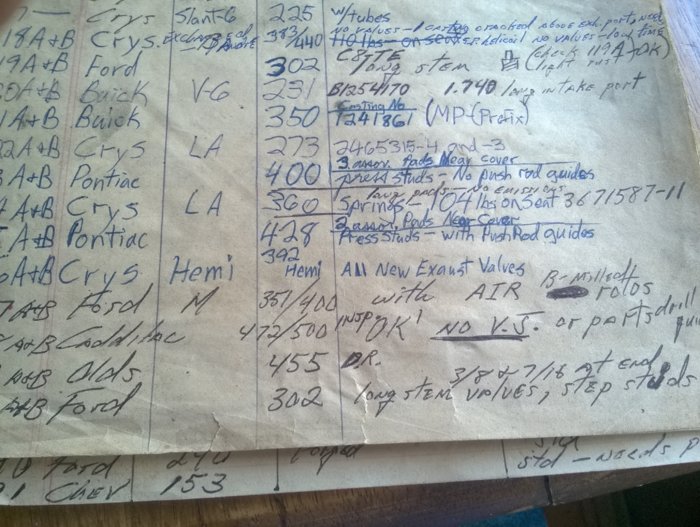 7 — Crys Slant-6 225 w/tubes
18A+B Crys. 383/440 NO VALVES - 1 casting cracked above exh. ports, need
NO VALVES -
19A+B Ford 302 C8TE long stem (check 119A-OK)
light rust
20A+B Buick V-6 231 B1254170 1.740 long intake port
1A+B Buick 350 Casting No 1241861 (MP-(Prefix)
22A+B Crys LA 273 2465315-4 and -3
3 assor. Pads Near cover
3 A+B Pontiac 400 press studs - No push rod guides
long pads - NO EMISSIONS
4 A+B Crys LA 360 Springs - 104 lbs on Seat 3671587-11
2 assor. Pads Near Cover
5 A+B Pontiac 428 Press Studs - with Push Rod guides
6 A+B Crys Hemi 392 Hemi All New Exaust Valves
7 A+B Ford M 351/400 with AIR B-Milled rotos
A+B Caddilac 472/500 insp OK! NO V.J. or parts drill
A+B Olds 455 D.R.
3/8 & 7/16 at end
A+B Ford 302 long stem valves, step studs
0 Ford 240 std - needs p
91 Chev 153